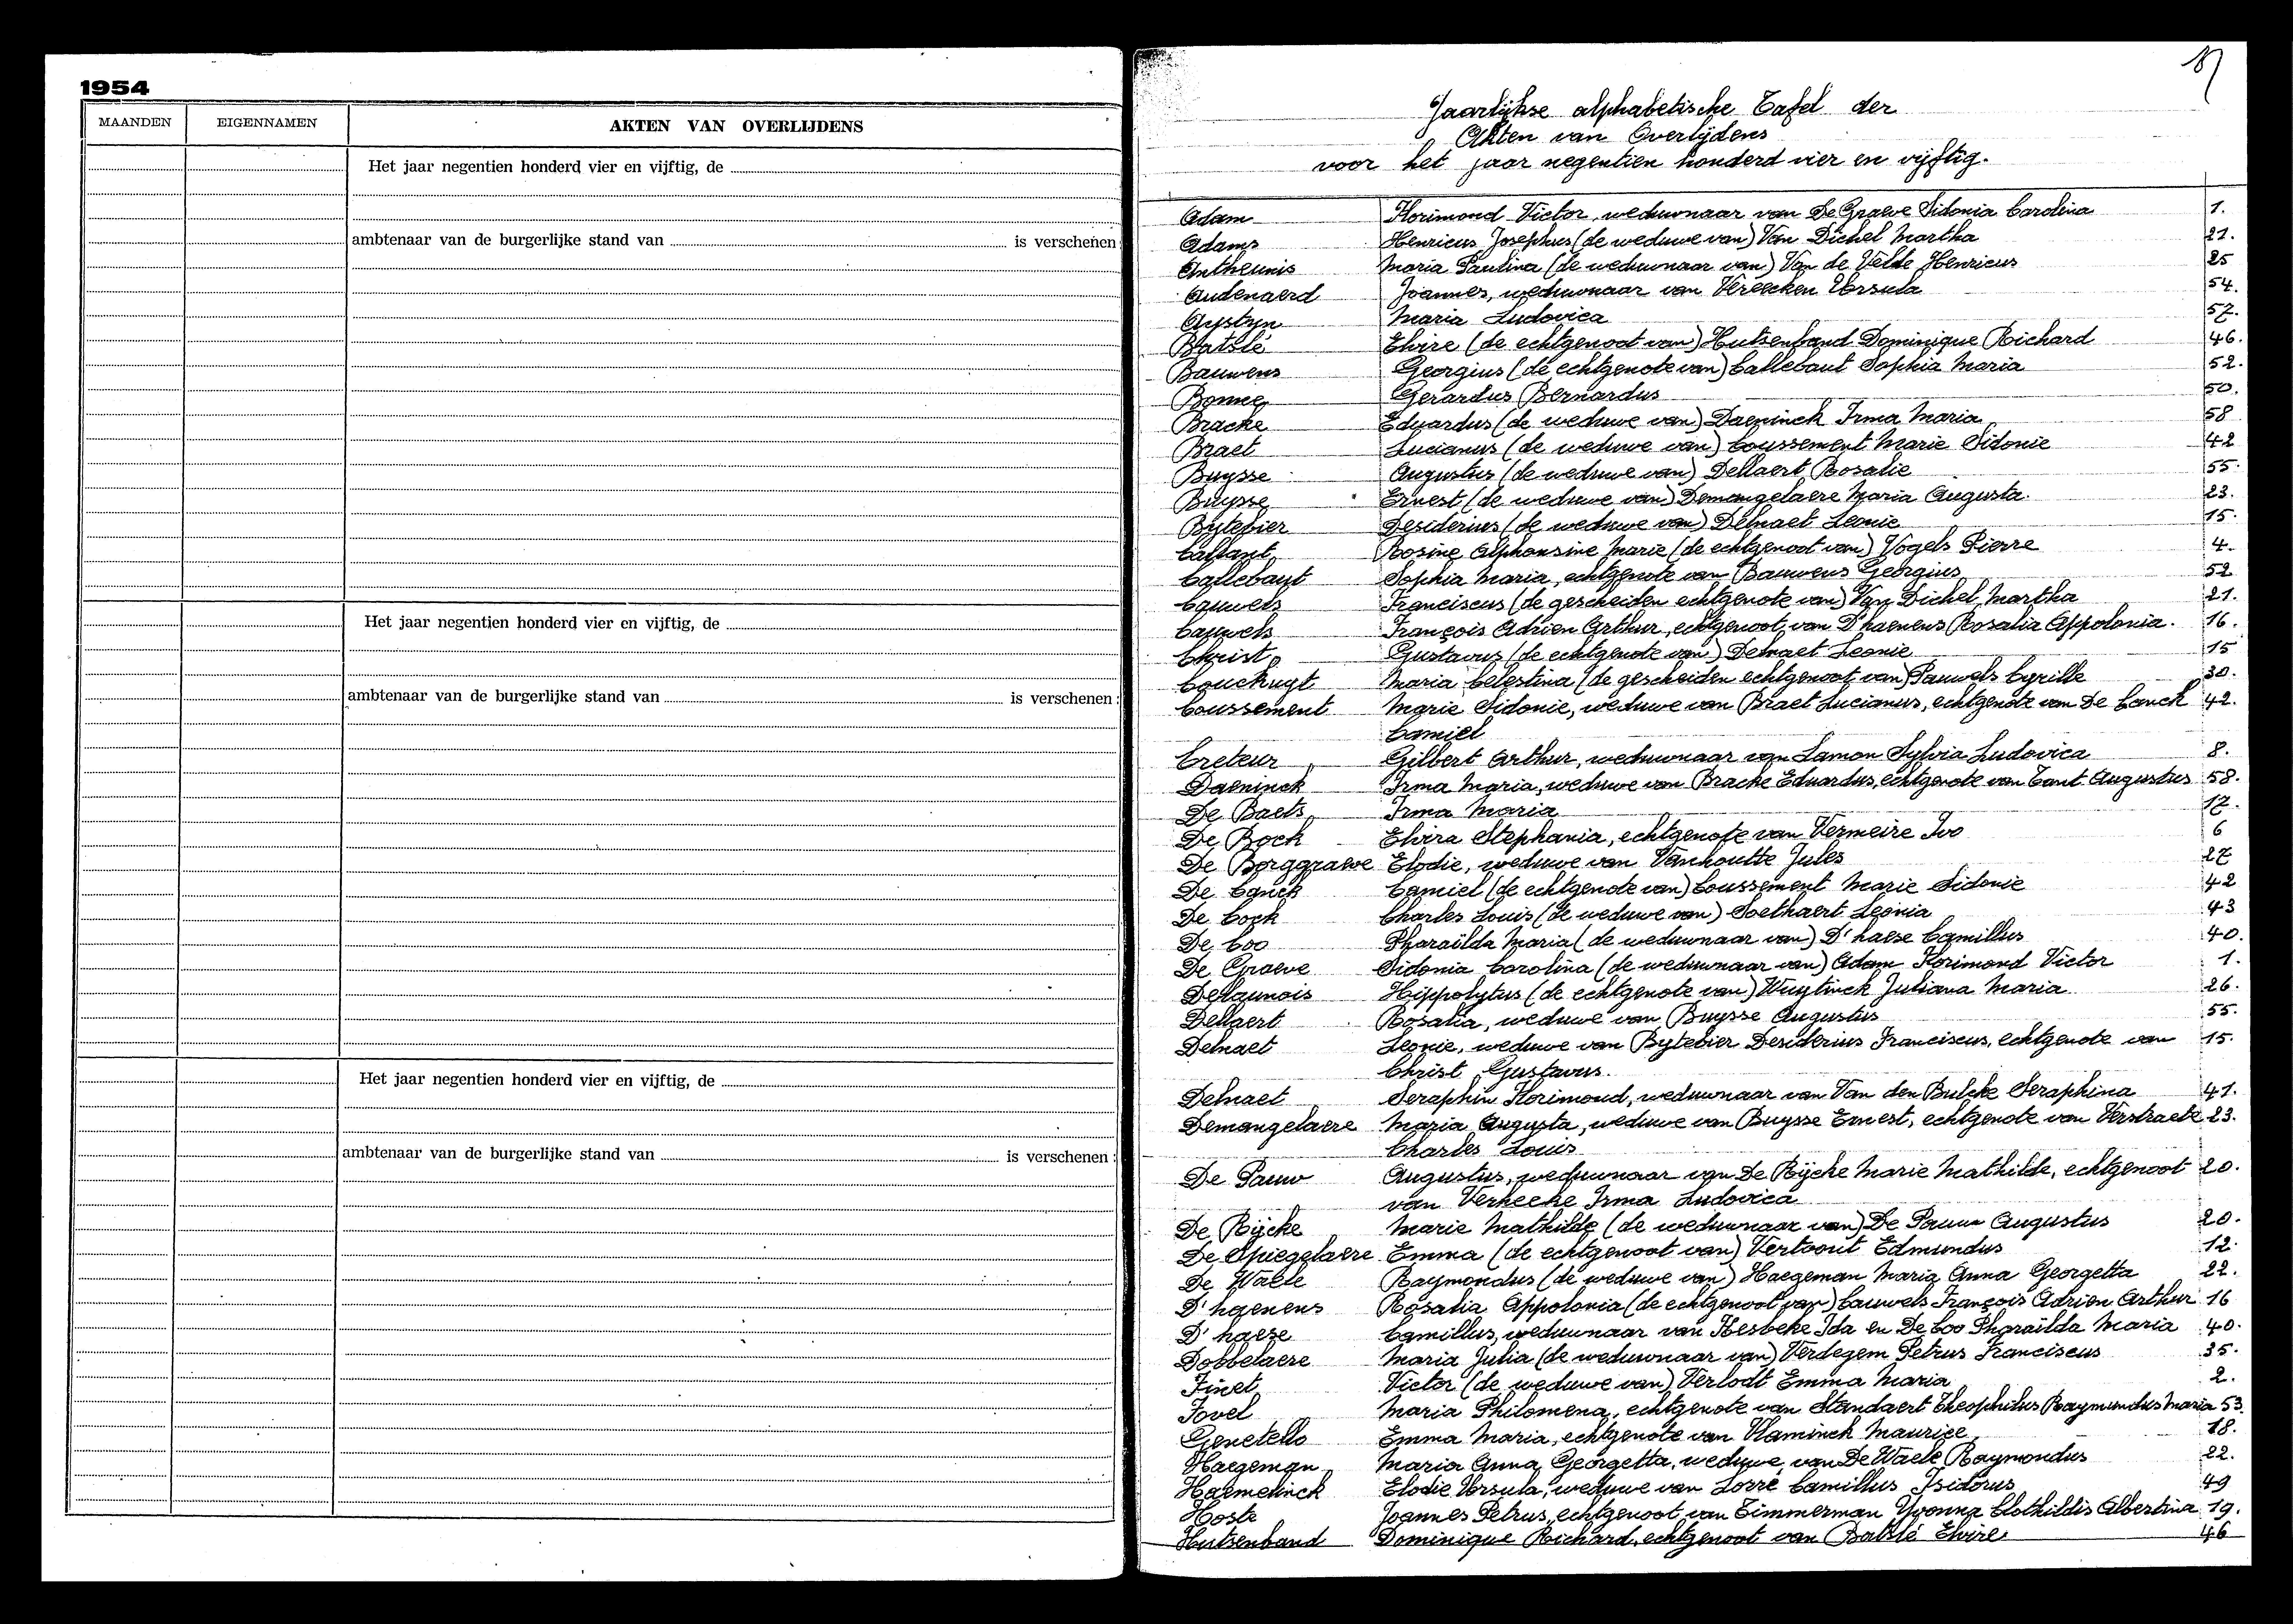 1954
MAANDEN EIGENNAMEN AKTEN VAN OVERLIJDENS
Het jaar negentien honderd vier en vijftig, de
ambtenaar van de burgerlijke stand van is verschenen
Het jaar negentien honderd vier en vijftig, de
ambtenaar van de burgerlijke stand van is verschenen:
Het jaar negentien honderd vier en vijftig, de
ambtenaar van de burgerlijke stand van is verschenen:
Jaarlijkse alphabetische Tafel der
Akten van Overlijdens
voor het jaar negentien honderd vier en vijftig.
Adam Florimond Victor, weduwnaar van De Graeve Sidonia Carolina 1.
Adams Henricus Josephus (de weduwe van) Van Dichel Martha 21.
Antheunis Maria Paulina (de weduwnaar van) Van de Velde Henricus 25
Audenaerd Joannes, weduwnaar van Vereecken Ursula 54.
Aystyn Maria Ludovica 57.
Batslé Elvire (de echtgenoot van) Hutsenband Dominique Richard 46.
Bauwens Georgius (de echtgenote van) Callebaut Sophia Maria 52.
Bonne Gerardus Bernardus 50.
Bracke Eduardus (de weduwe van) Daeninck Irma Maria 58
Braet Lucianus (de weduwe van) Coussement Marie Sidonie 42
Buysse Augustus (de weduwe van) Dellaert Rosalie 55.
Buysse Ernest (de weduwe van) Demangelaere Maria Augusta. 23.
Bytebier Desiderius (de weduwe van) Delnaet Leonie 15.
Callant Rosine Alphonsine Marie (de echtgenoot van) Vogels Pierre 4.
Callebaut Sophia Maria, echtgenote van Bauwens Georgius 52
Cauwels Franciscus (de gescheiden echtgenote van) Van Dichel Martha 21.
Cauwels François Adrien Arthur, echtgenoot van D'haenens Rosalia Appolonia. 16.
Christ Gustavus (de echtgenote van) Delnaet Leonie 15
Couckuyt Maria Celestina (de gescheiden echtgenoot van) Pauwels Cyrille 30.
Coussement Marie Sidonie, weduwe van Braet Lucianus, echtgenote van De Canck 42.
Camiel
Creteur Gilbert Arthur, weduwnaar van Lamon Sylvia Ludovica 8.
Daeninck Irma Maria, weduwe van Bracke Eduardus, echtgenote van Tant Augustus 58.
De Baets Irma Maria 17.
De Bock Elvira Stephania, echtgenote van Vermeire Ivo 6
De Borggraeve Elodie, weduwe van Vanhoutte Jules 27
De Canck Camiel (de echtgenote van) Coussement Marie Sidonie 42
De Cock Charles Louis (de weduwe van) Soethaert Leonia 43
De Coo Pharaïlda Maria (de weduwnaar van) D'haese Camillus 40.
De Graeve Sidonia Carolina (de weduwnaar van) Adam Florimond Victor 1.
Delaunois Hippolytus (de echtgenote van) Wuytinck Juliana Maria 26.
Dellaert Rosalia, weduwe van Buysse Augustus 55.
Delnaet Leonie, weduwe van Bytebier Desiderius Franciscus, echtgenote van 15.
Christ Gustavus.
Delnaet Seraphin Florimond, weduwnaar van Van den Bulcke Seraphina 41.
Demangelaere Maria Augusta, weduwe van Buysse Ernest, echtgenote van Verstraete 23.
Charles Louis
De Pauw Augustus, weduwnaar van De Rijcke Marie Mathilde, echtgenoot 20.
van Verkeeke Irma Ludovica
De Rijcke Marie Mathilde (de weduwnaar van) De Pauw Augustus 20.
De Spiegelaere Emma (de echtgenoot van) Vertoont Edmundus 12.
De Waele Raymondus (de weduwe van) Haegeman Maria Anna Georgetta 22.
D'haenens Rosalia Appolonia (de echtgenoot van) Cauwels François Adrien Arthur 16
D'haese Camillus, weduwnaar van Hesbeke Ida en De Coo Pharaïlda Maria 40.
Dobbelaere Maria Julia (de weduwnaar van) Verdegem Petrus Franciscus 35.
Finet Victor (de weduwe van) Verlodt Emma Maria 2.
Fovel Maria Philomena, echtgenote van Standaert Theophilus Raymundus Maria 53.
Genetello Emma Maria, echtgenote van Vlaminck Maurice 18.
Haegeman Maria Anna Georgetta, weduwe van De Waele Raymondus 22.
Haemelinck Elodie Ursula, weduwe van Lorré Camillus Isidorus 49
Hoste Joannes Petrus, echtgenoot van Timmerman Yvonna Clothildis Albertina 19.
Hutsenband Dominique Richard, echtgenoot van Batslé Elvire. 46